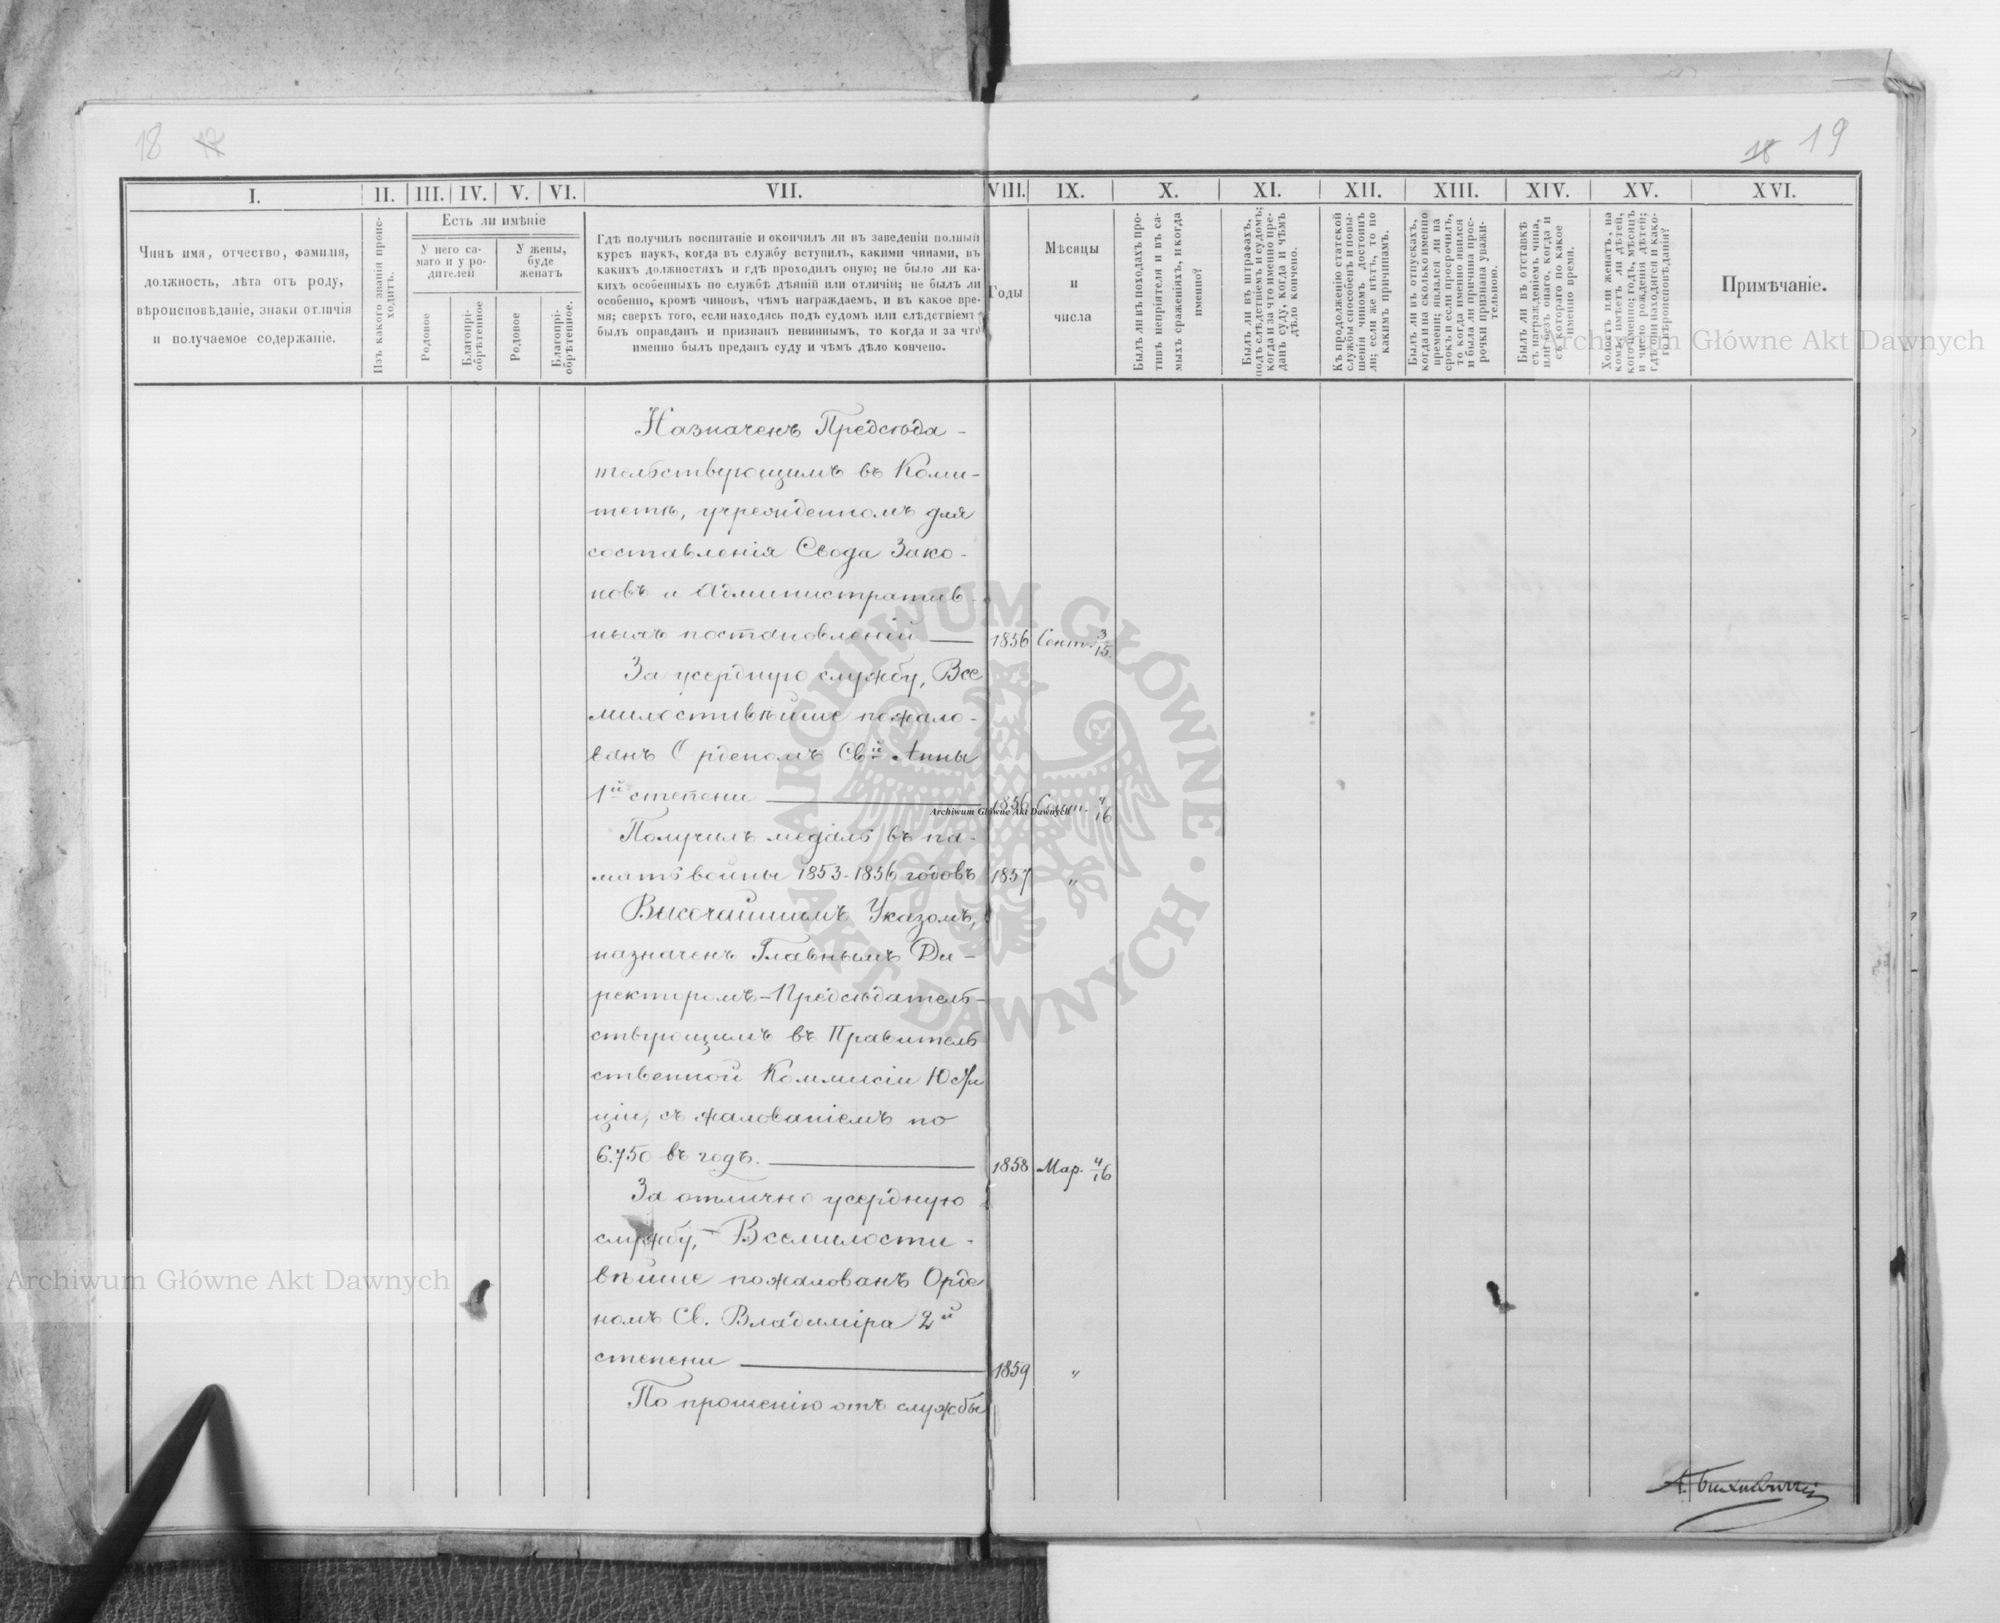 18 17
18 19
I. II. III. IV. V. VI. VII. VIII. IX. X. XI. XII. XIII. XIV. XV. XVI.
Чинъ имя, отчество, фамилія,
должность, лѣта отъ роду,
вѣроисповѣданіе, знаки отличія
и получаемое содержаніе.
Изъ какого званія проис-
ходитъ.
Есть ли имѣніе
У него са-
маго и у ро-
дителей
У жены,
буде
женатъ
Родовое
Благопрі-
обрѣтенное
Родовое
Благопрі-
обрѣтенное.
Гдѣ получилъ воспитаніе и окончилъ ли въ заведеніи полный
курсъ наукъ, когда въ службу вступилъ, какими чинами, въ
какихъ должностяхъ и гдѣ проходилъ оную; не было ли ка-
кихъ особенныхъ по службѣ дѣяній или отличій; не былъ ли
особенно, кромѣ чиновъ, чѣмъ награждаемъ, и въ какое вре-
мя; сверхъ того, если находясь подъ судомъ или слѣдствіемъ
былъ оправданъ и признанъ невиннымъ, то когда и за что
именно былъ преданъ суду и чѣмъ дѣло кончено.
Годы
Мѣсяцы
и
числа
Былъ ли въ походахъ про-
тивъ непріятеля и въ са-
мыхъ сраженіяхъ, и когда
именно?
Былъ ли въ штрафахъ,
подъ слѣдствіемъ и судомъ;
когда и за что именно пре-
данъ суду, когда и чѣмъ
дѣло кончено.
Къ продолженію статской
службы способенъ и повы-
шенія чиномъ достоинъ
ли; если же нѣтъ, то по
какимъ причинамъ.
Былъ ли въ отпускахъ,
когда и на сколько именно
времени; являлся ли на
срокъ и если просрочилъ,
то когда именно явился
и была ли причина прос-
рочки признана уважи-
тельною.
Былъ ли въ отставкѣ
съ награжденіемъ чина,
или безъ онаго, когда и
съ котораго по какое
именно время.
Холостъ или женатъ, на
комъ, имѣетъ ли дѣтей,
кого именно; годъ, мѣсяцъ
и число рожденія дѣтей;
гдѣ они находятся и како-
го вѣроисповѣданія?
Примѣчаніе.
Назначенъ Предсѣда-
тельствующимъ въ Коми-
тетѣ, учрежденномъ для
составленія Свода Зако-
новъ и Административ-
ныхъ постановленій 1856 Сент. 3/15.
За усердную службу, Все
милостивѣйше пожало-
ванъ Орденомъ Св<sup>й</sup> Анны
1<sup>й</sup> степени 1856 Сент. 4/16
Получилъ медаль въ па-
мять войны 1853-1856 годовъ 1857 "
Высочайшимъ Указомъ,
назначенъ Главнымъ Ди-
ректоромъ-Предсѣдатель-
ствующимъ въ Правитель
ственной Коммисіи Юсти
ціи, съ жалованіемъ по
6.750 въ годъ. 1858 Мар. 4/16
За отлично усердную
службу, Всемилости-
вѣйше пожалованъ Орде
номъ Св. Владиміра 2<sup>й</sup>
степени 1859 "
По прошенію отъ службы
Archiwum Główne Akt Dawnych
Archiwum Główne Akt Dawnych
Archiwum Główne Akt Dawnych
ARCHIWUM GŁÓWNE · AKT DAWNYCH ·